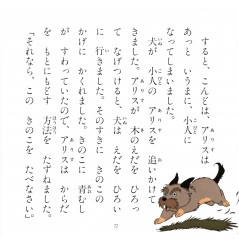 すると、こんどは、アリスは
あっと いうまに、小人に
なってしまいました。
犬が 小人の アリスを 追いかけて
きました。アリスが 木のえだを ひろい
て なげつけると、犬は えだを ひろい
に 行きました。そのすきに きのこの
かげに かくれました。きのこに 青むし
が すわっていたので、アリスは からだ
を もとにもどす 方法を たずねました。
「それなら、この きのこを たべなさい」
22